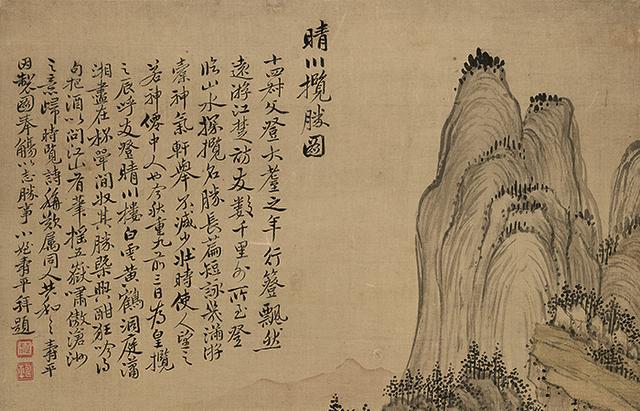 晴川攬勝圖
十四叔父登大耋之年行簦飄然
遠游江楚訪友數千里外所至登
臨山水探攬名勝長篇短詠幾滿游
橐神氣軒舉不減少壯時使人望之
若神僊中人也今秋重九前三日為皇攬
之辰呼友登晴川樓白雲黃鶴洞庭瀟
湘盡在杯斝間收其勝槩興酣狂吟得
句把酒以問江有筆搖五嶽嘯傲滄洲
之意歸時覽詩稱歎屬同人共和之壽平
因製圖奉觴以志勝事小姪壽平拜題